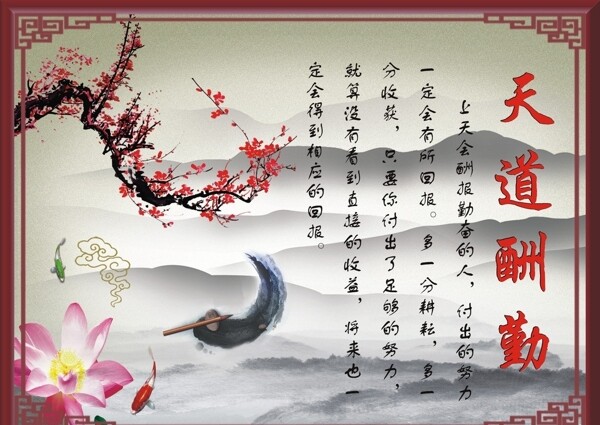 天道酬勤
上天会酬报勤奋的人，付出的努力
一定会有所回报。多一分耕耘，多一
分收获，只要你付出了足够的努力，
就算没有看到直接的收益，将来也一
定会得到相应的回报。